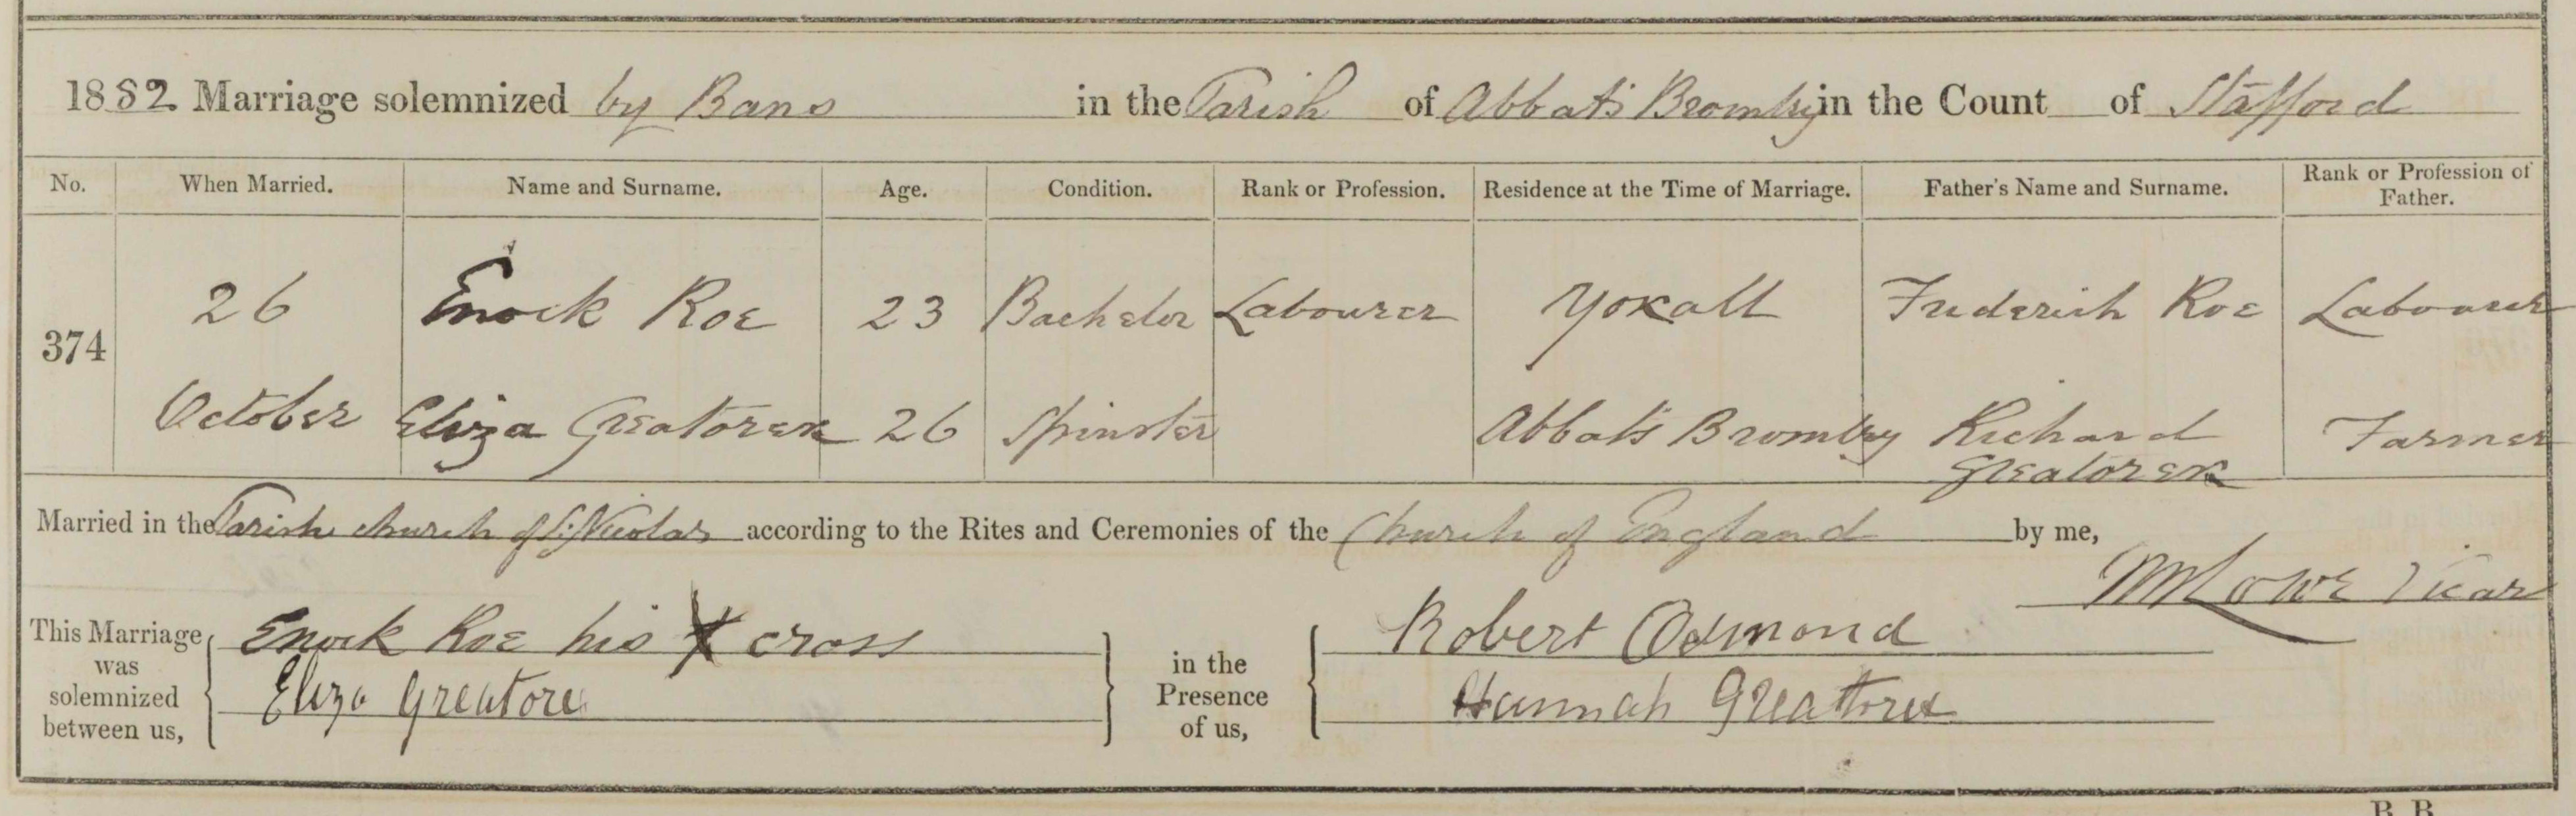 1882 Marriage solemnized by Bans in the Parish of Abbats Bromley in the Count of Stafford
No. When Married. Name and Surname. Age. Condition. Rank or Profession. Residence at the Time of Marriage. Father's Name and Surname. Rank or Profession of Father.
374
26 Enock Roe 23 Bachelor Labourer Yoxall Frederick Roe Labourer
October Eliza Greatorex 26 Spinster Abbats Bromley Richard Greatorex Farmer
Married in the Parish church of St. Nicolas according to the Rites and Ceremonies of the Church of England by me,
Lowe Vicar
This Marriage was solemnized between us,
Enock Roe his X cross
Eliza Greatore
in the Presence of us,
Robert Osmond
Hannah Greattorex
B B